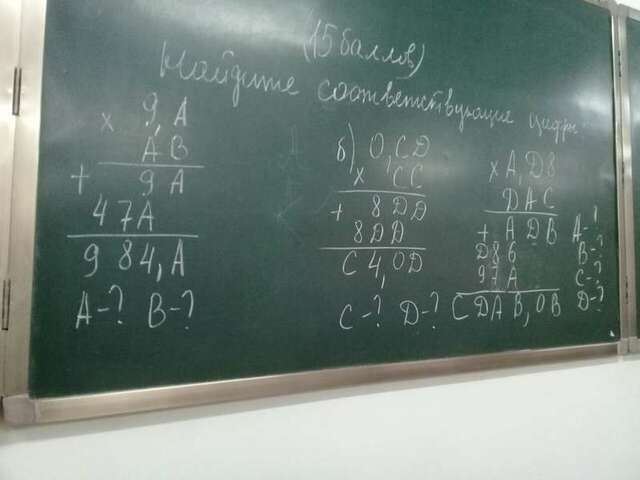 (15 баллов)
Найдите соответствующие цифры
× 9,A
AB
+ 9A
47A
984,A
A-? B-?
б) 0,CD
× CC
+ 8DD
8DD
C4,0D
C-? D-?
× A,D8
DAC
+ ADB
D86
97A
CDAB,0B
A-?
B-?
C-?
D-?